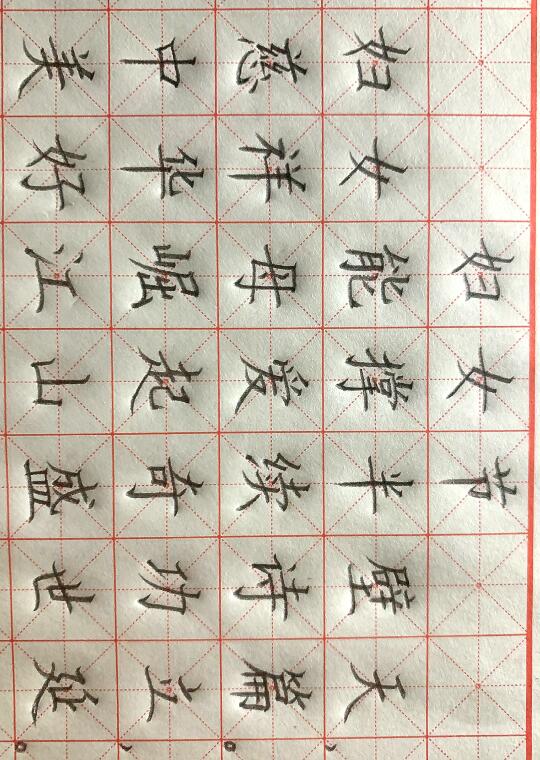 妇女节
妇女能撑半壁天，
慈祥母爱续诗篇。
中华崛起奇功立，
美好江山盛世延。